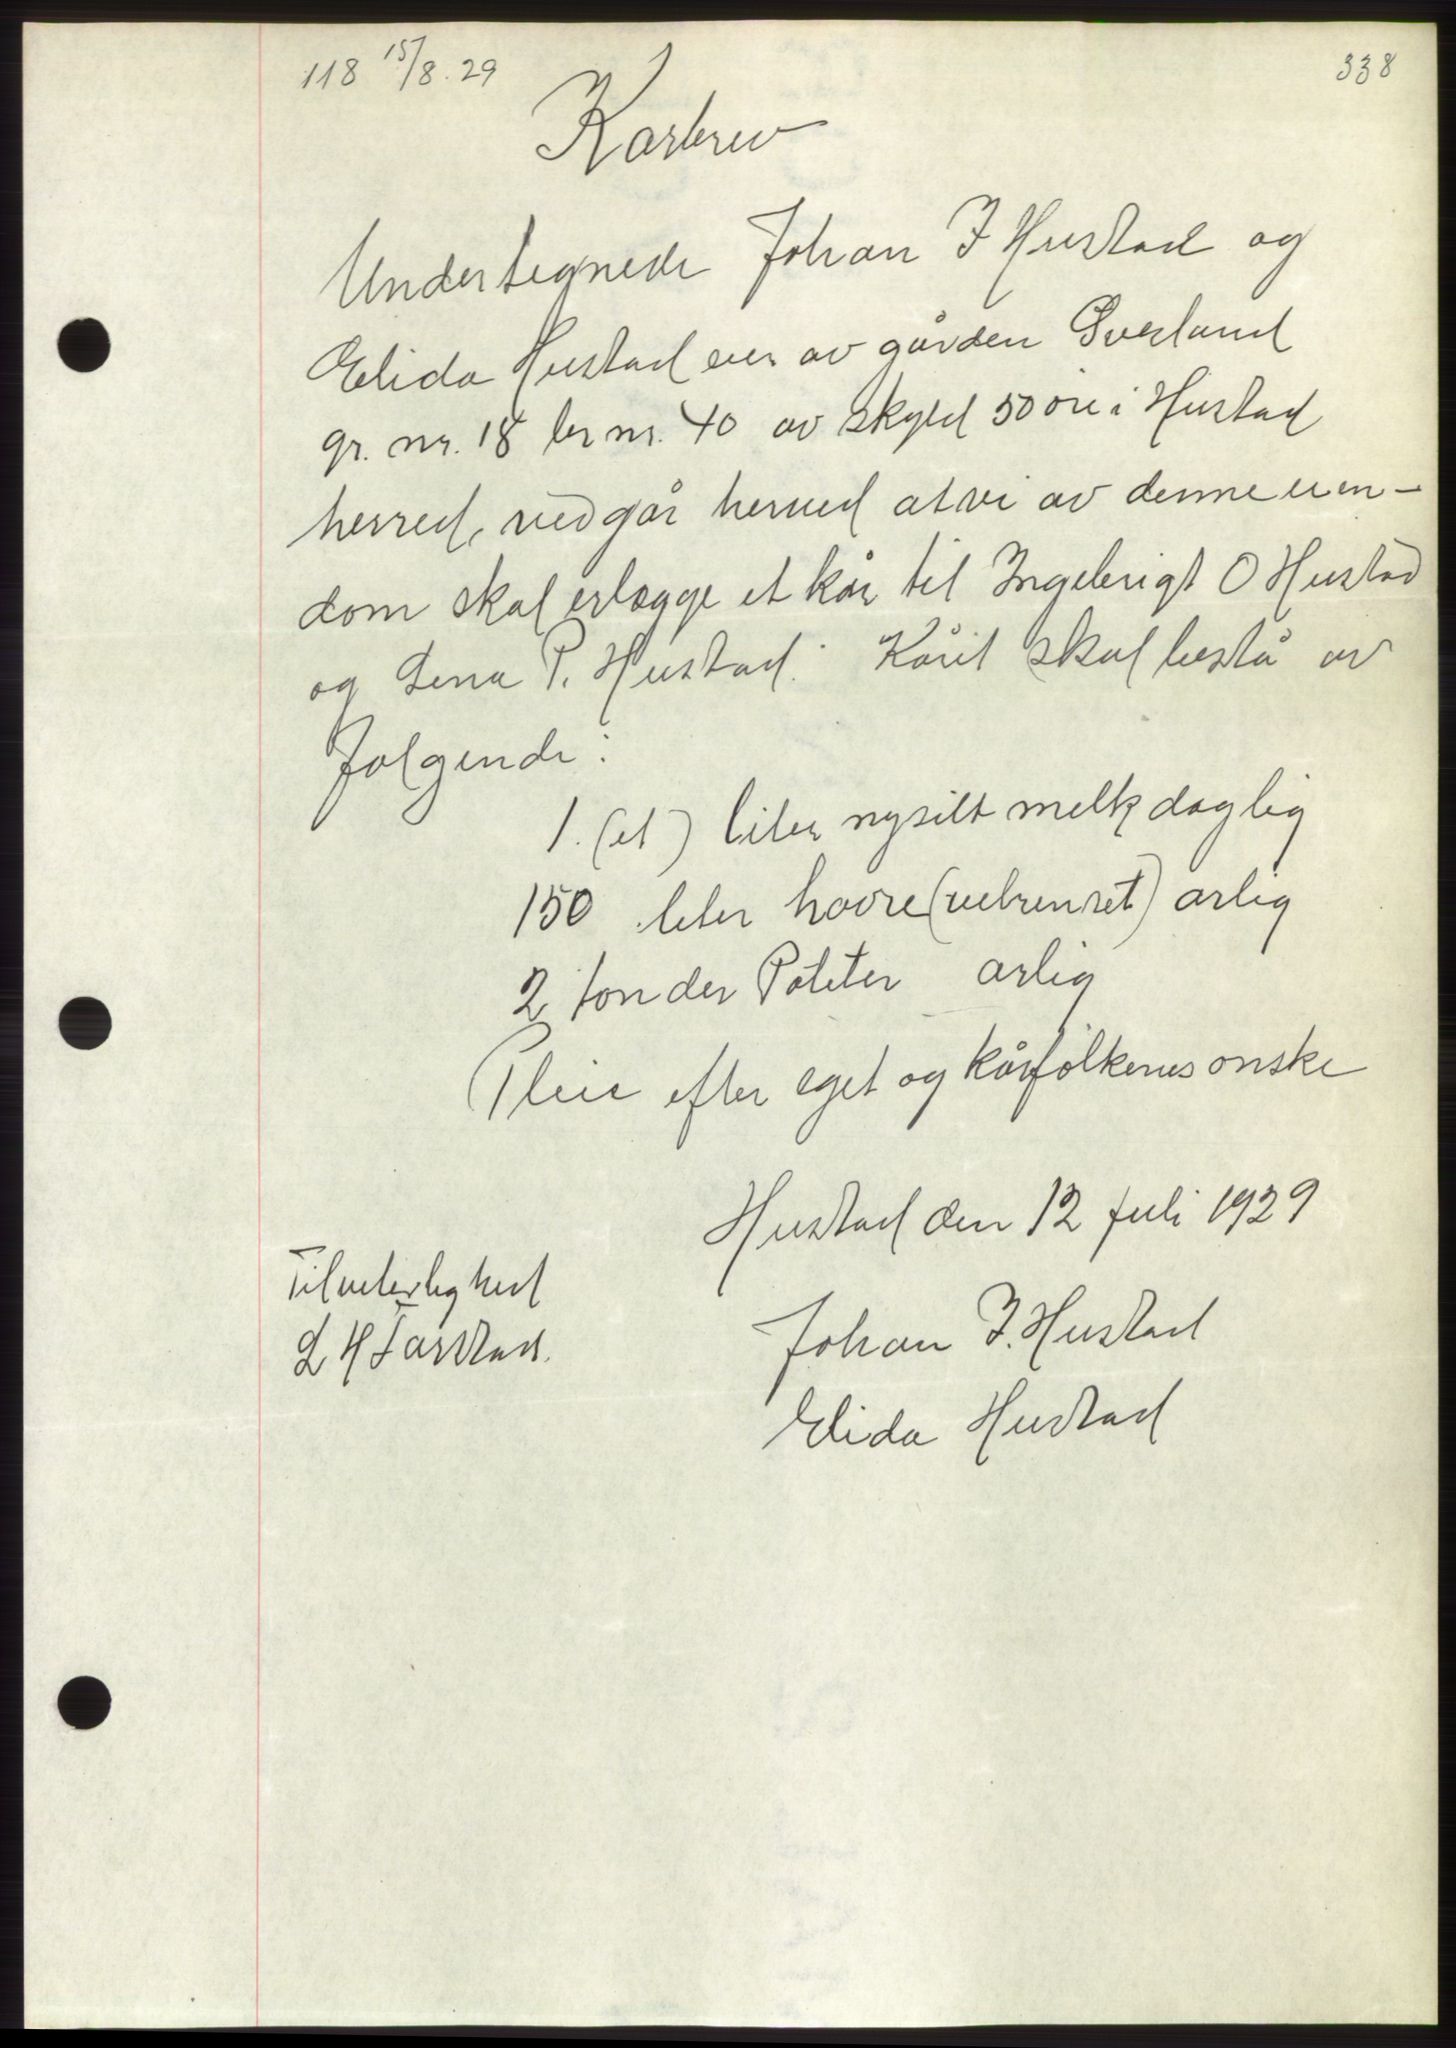 118 15/8.29
338
Karbrev
Undertegnede Johan I Hustad og
Elida Hustad eier av gården Sverland
gr. nr. 18 br nr. 40 av skyld 50 øre i Hustad
herred, vedgår herved at vi av denne eien-
dom skal erlægge et kår til Ingebrigt O Hustad
og Lena P. Hustad. Kåret skal bestå av
følgende:
1. (et) liter nysilt melk daglig
150 liter havre (velrenset) arlig
2 tonder Poteter arlig
Pleie efter eget og kårfolkenes onske
Hustad den 12 juli 1929
Til vitterlighed
L H Tarstad.
Johan I. Hustad
Elida Hustad